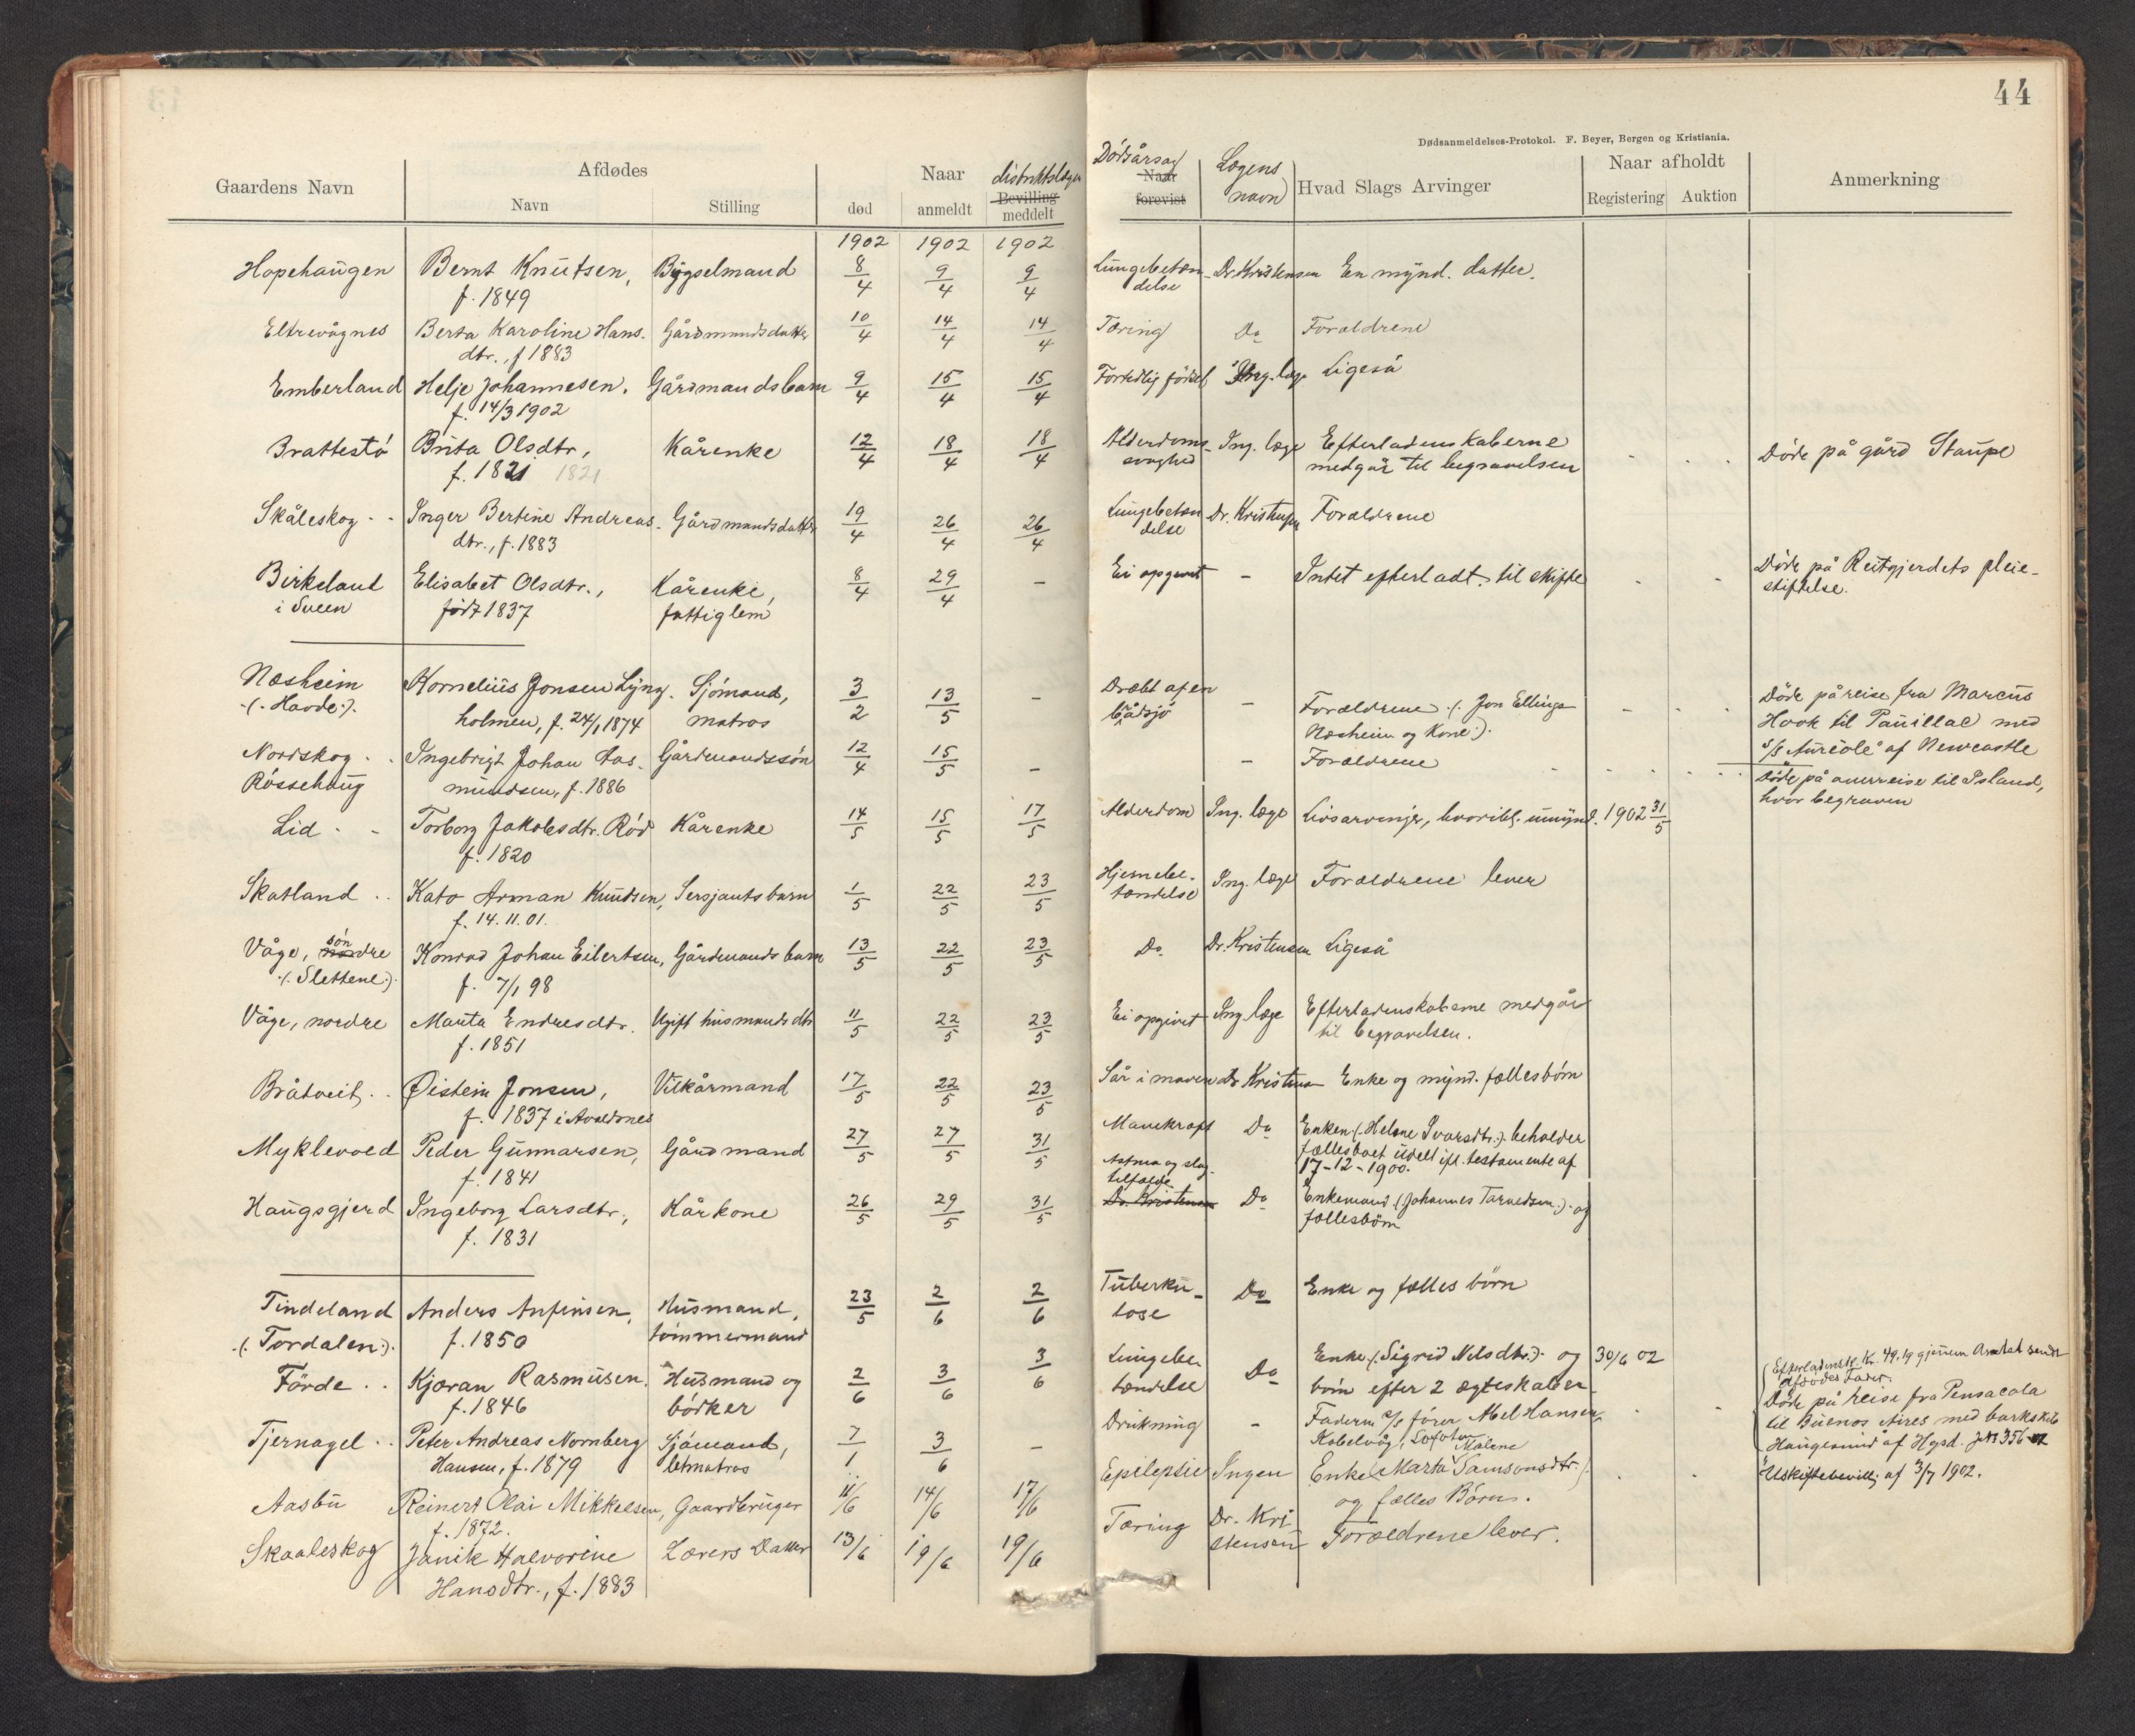 44
Dødsanmeldelses-Protokol. F. Beyer, Bergen og Kristiania.
Gaardens Navn | Afdødes | Naar | Dødsårsag | Lægens navn | Hvad Slags Arvinger | Naar afholdt | Anmerkning
Navn | Stilling | død | anmeldt | distriktslægen Bevilling meddelt | Naar forevist | Registering | Auktion
1902 | 1902 | 1902
Hopehaugen | Bernt Knutsen, | Bygselmand | 8/4 | 9/4 | 9/4 | Lungebetæn- | Dr. Kristensen | En mynd. datter.
f. 1849 | delse
Eltrevågnes | Berta Karoline Hans- | Gårdmandsdatter | 10/4 | 14/4 | 14/4 | Tæring | Do | Forældrene
dtr., f 1883
Emberland | Helje Johannesen, | Gårdmandsbarn | 9/4 | 15/4 | 15/4 | Fortidlig fødsel | Ing. læge | Ligeså
f. 14/3 1902
Brattestø | Brita Olsdtr, | Kårenke | 12/4 | 18/4 | 18/4 | Alderdoms- | Ing. læge | Efterladenskaberne | Døde på gård Staupe
f. 1821 1821 | svaghed | medgår til begravelsen
Skåleskog | Inger Bertine Andreas- | Gårdmandsdatter | 19/4 | 26/4 | 26/4 | Lungebetæn | Dr. Kristensen | Forældrene
dtr., f. 1883 | delse
Birkeland | Elisabet Olsdtr., | Kårenke, | 8/4 | 29/4 | - | Ei opgivet | - | Intet efterladt til skifte | Døde på Reitgjerdets pleie-
i Sveen | født 1837 | fattiglem | stiftelse.
Næsheim | Kornelius Jonsen Lyng- | Sjømand, | 3/2 | 13/5 | - | Dræbt af en | - | Forældrene (: Jon Ellings | Døde på reise fra Marcus
(: Havde :) | holmen, f. 24/1 1874 | matros | bådsjø | Næsheim og Kone :). | Hook til Pauillac med
Nordskog | Ingebrigt Johan Aas- | Gårdmandssøn | 12/4 | 15/5 | - | - | Forældrene | S/S "Aureole" af Newcastle
Røssehaug | mundsen, f. 1886 | Døde på reise til Island,
hvor begraven
Lid | Torborg Jakobsdtr. Rød | Kårenke | 14/5 | 15/5 | 17/5 | Alderdom | Ing. læge | Livsarvinger, hvoribl. umynd. | 1902 31/5
f. 1820
Skatland | Kato Arman Knudsen, | Sersjantsbarn | 1/5 | 22/5 | 23/5 | Hjernebe- | Ing. læge | Forældrene lever
f. 14.11.01. | tændelse
Våge, søndre | Konrad Johan Eilertsen, | Gårdmandsbarn | 13/5 | 22/5 | 23/5 | Do. | Dr. Kristensen | Ligeså
(: Slettene :) | f. 7/1 98
Våge, nordre | Marita Endresdtr. | Ugift husmandsdtr | 11/5 | 22/5 | 23/5 | Ei opgivet | Ing. læge | Efterladenskaberne medgår
f. 1851 | til begravelsen.
Bråtveit | Øistein Jonsen, | Vilkårmand | 17/5 | 22/5 | 23/5 | Sår i maven | Dr Kristensen | Enke og mynd. fællesbørn
f. 1837 i Avaldsnes
Myklevold | Peder Gunnarsen, | Gårdmand | 27/5 | 27/5 | 31/5 | Mavekræft | Do | Enken (: Helene Ivarsdtr. :) beholder
f. 1841 | fællesboet udelt ifl. testamente af
17-12-1900.
Haugsgjerd | Ingeborg Larsdtr., | Kårkone | 26/5 | 29/5 | 31/5 | Astma og slag- | Do | Enkemand (: Johannes Taraldsen :) og
f. 1831 | tilfælde | fællesbørn
Dr. Kristensen
Tindeland | Anders Anfinsen, | Husmand, | 23/5 | 2/6 | 2/6 | Tuberku- | Do | Enke og fælles børn
(: Tordalen :) | f. 1850 | tømmermand | lose
Førde | Kjøran Rasmusen, | Husmand og | 2/6 | 3/6 | 3/6 | Lungebe | Do | Enke (: Sigrid Nilsdtr. :) og | 30/6 02
f. 1846 | bødker | tændelse | børn efter 2 ægteskaber
Tjernagel | Peter Andreas Nornberg | Sjømand, | 7/1 | 3/6 | - | Drukning | - | Faderen fører Abel Hansen, | Efterladensk. Kr. 49.19 gjennem Amtet sendt
Hansen, f. 1879 | letmatros | Kabelvåg, Lofoten | Afdødes Fader.
Døde på reise fra Pensacola
til Buenos Aires med barkskib
"Haugesund" af Hgsd. JN 356
Aasbu | Reinert Olai Mikkelsen, | Gaardbruger | 11/6 | 14/6 | 17/6 | Epilepsie | Ingen | Enke (: Marta Malene Samsonsdtr. :) | Uskiftebevillg. af 3/7 1902.
f. 1872. | og fælles Børn.
Skaaleskog | Janik Halvorine | Lærers Datter | 13/6 | 19/6 | 19/6 | Tæring | Dr. Kri | Forældrene lever.
Hansdtr., f. 1883 | stensen